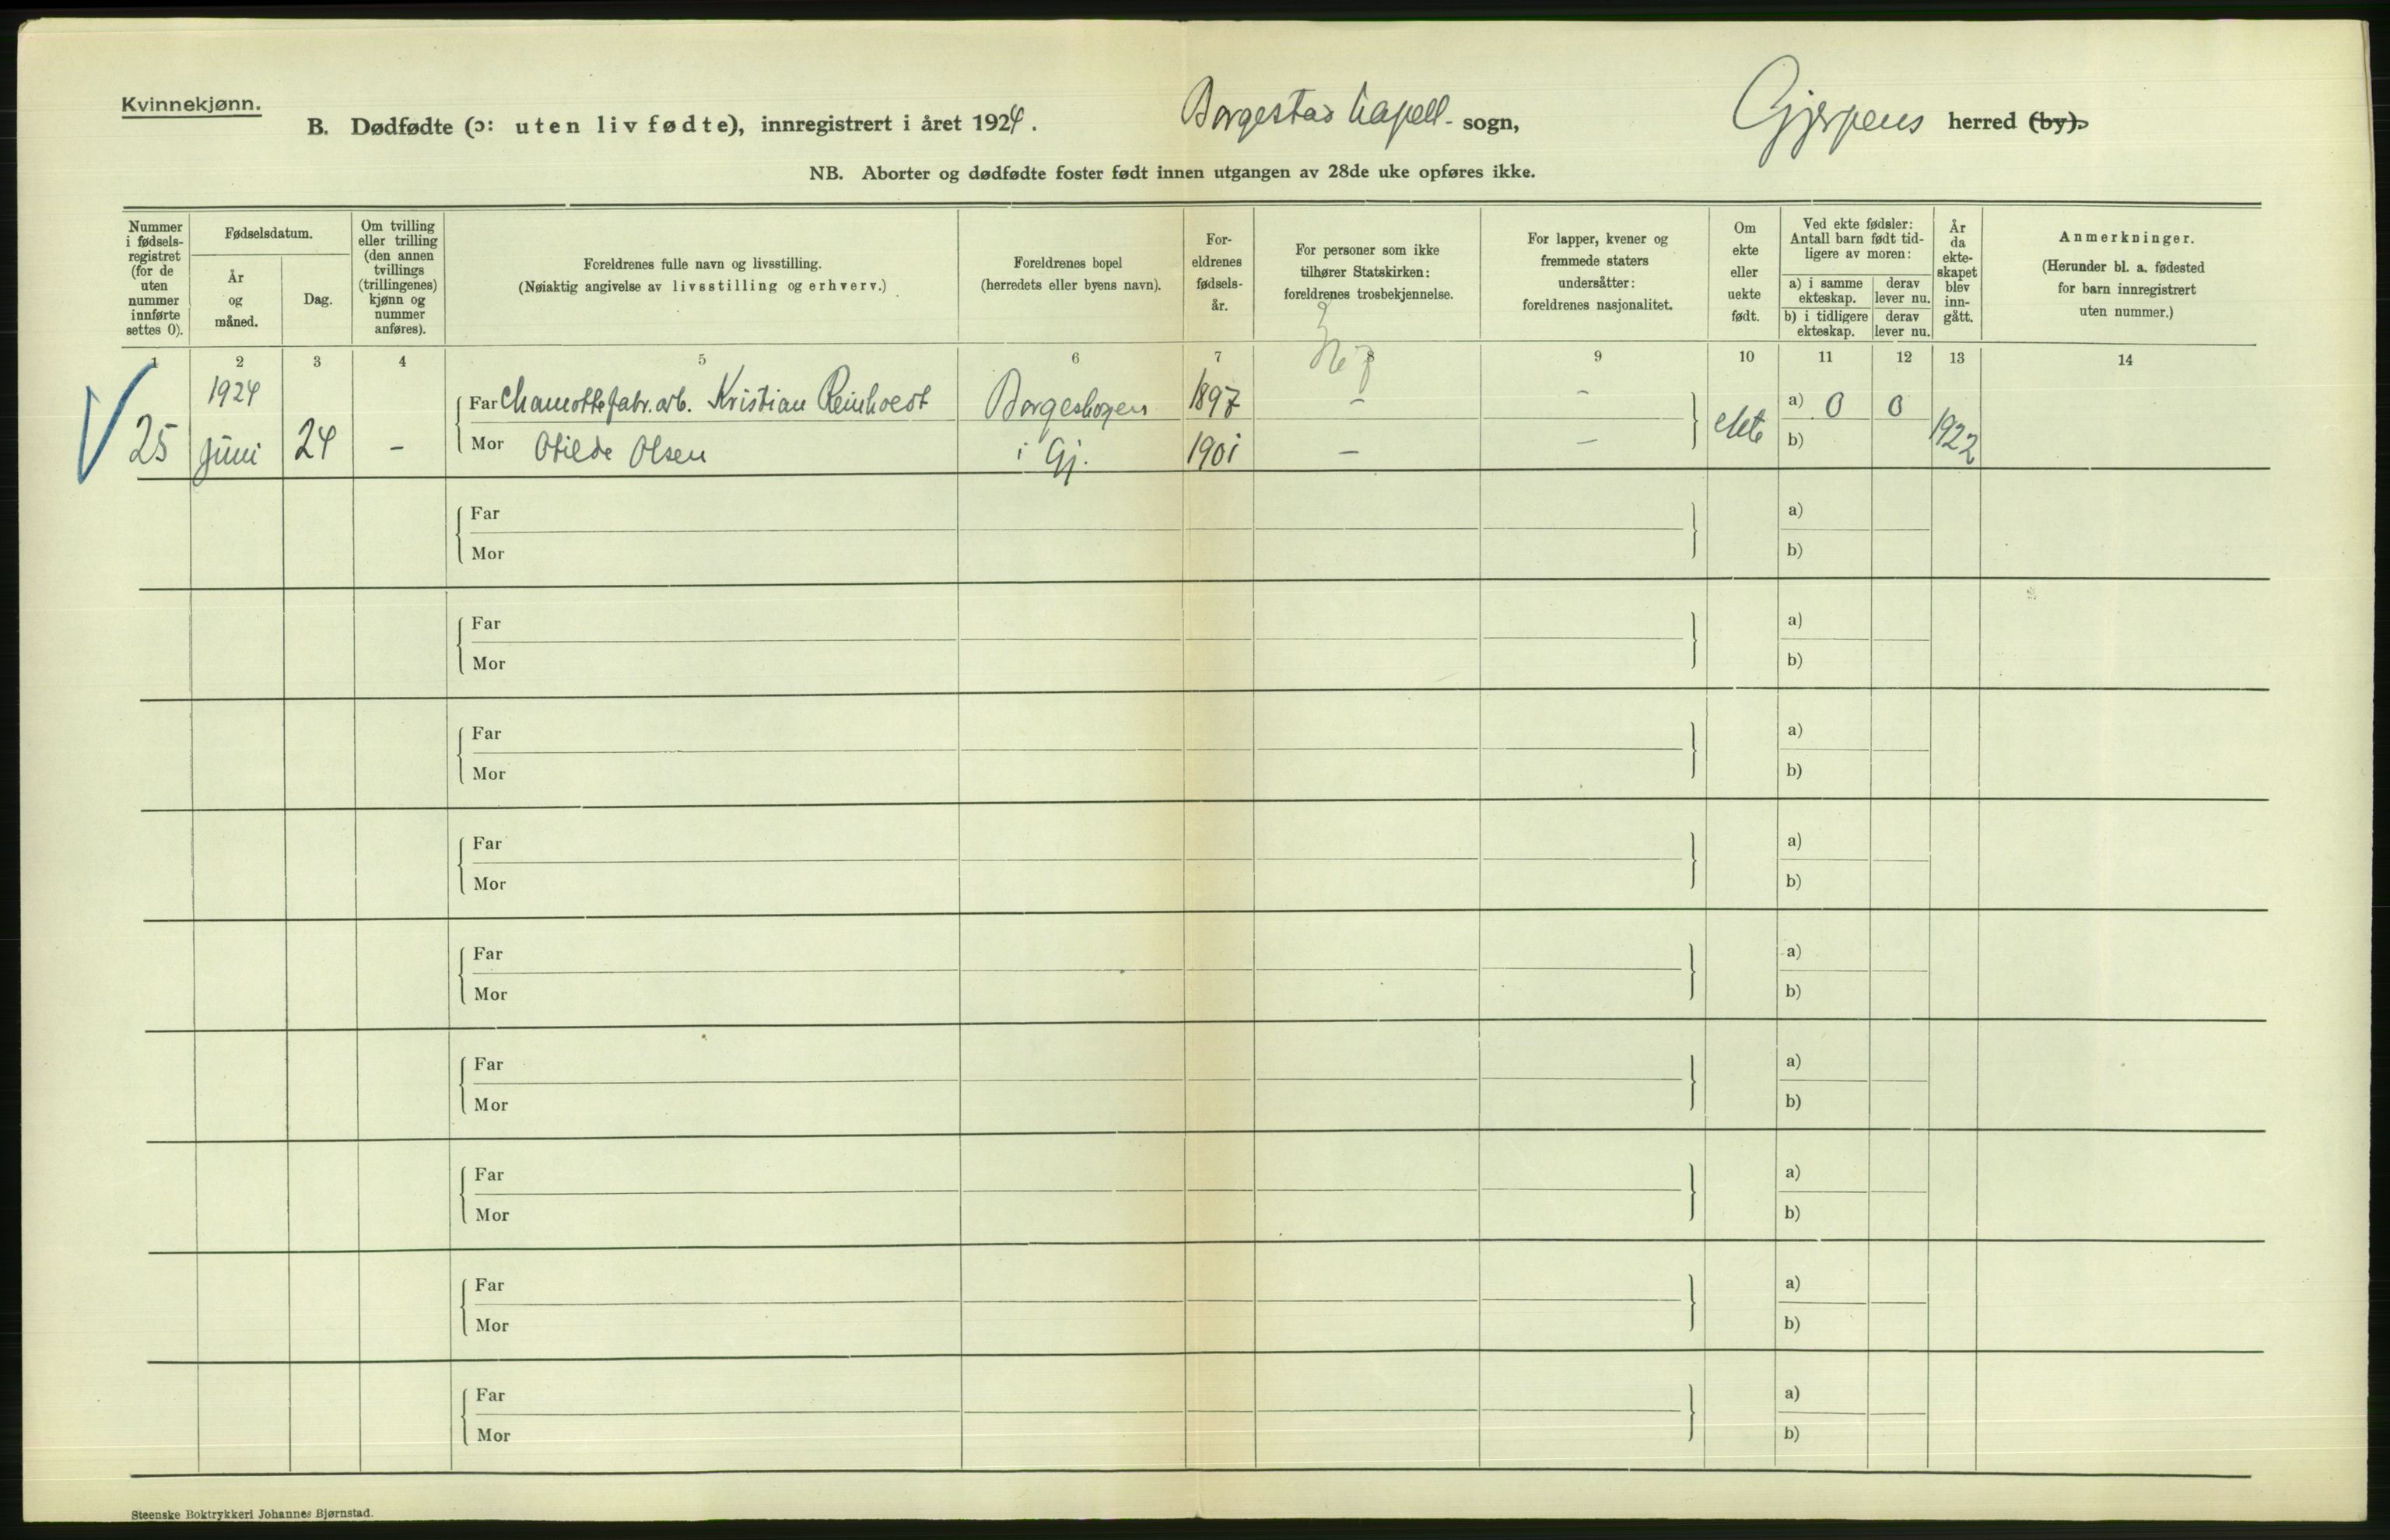 Kvinnekjønn.
B. Dødfødte (ɔ: uten liv fødte), innregistrert i året 1924. Borgestad Kapell- sogn, Gjerpens herred (by).
NB. Aborter og dødfødte foster født innen utgangen av 28de uke opføres ikke.
Nummer i fødsels-registret (for de uten nummer innførte settes 0).
Fødselsdatum.
År og måned.
Dag.
Om tvilling eller trilling (den annen tvillings (trillingenes) kjønn og nummer anføres).
Foreldrenes fulle navn og livsstilling.
(Nøiaktig angivelse av livsstilling og erhverv.)
Foreldrenes bopel
(herredets eller byens navn).
For-eldrenes fødsels-år.
For personer som ikke tilhører Statskirken: foreldrenes trosbekjennelse.
For lapper, kvener og fremmede staters undersåtter: foreldrenes nasjonalitet.
Om ekte eller uekte født.
Ved ekte fødsler: Antall barn født tid-ligere av moren:
a) i samme ekteskap.
derav lever nu.
b) i tidligere ekteskap.
derav lever nu.
År da ekte-skapet blev inn-gått.
Anmerkninger.
(Herunder bl. a. fødested for barn innregistrert uten nummer.)
1 2 3 4 5 6 7 8 9 10 11 12 13 14
1924
Far Chamottefabr.arb. Kristian Reinholdt Borgeshogen 1897 - - a) 0 0
25 Juni 24 - Mor Otilde Olsen i Gj. 1901 - - ekte b) 1922
Far a)
Mor b)
Far a)
Mor b)
Far a)
Mor b)
Far a)
Mor b)
Far a)
Mor b)
Far a)
Mor b)
Far a)
Mor b)
Far a)
Mor b)
Far a)
Mor b)
Steenske Boktrykkeri Johannes Bjørnstad.